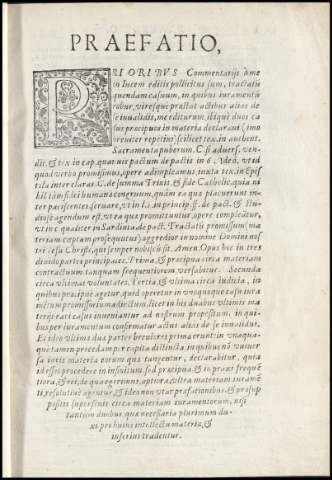 PRAEFATIO,
PRIORIBVS Commentarijs à me
in lucem editis pollicitus sum, tractatū
quendam casuum, in quibus iuramentū
robur, vires que præstat actibus alios de
se inualidis, me editurum, itique duos ca
sus præcipuos in materia declaraui (imo
reuocare reperim) scilicet tex. in authent.
Sacramenta puberum. C. si aduers. ven-
dit. & tex. in cap. quamuis pactum de pactis in 6. Ideo, vt id
quod verbo promisimus, opere adimpleamus iuxta tex. in Epi
stola inter claras. C. de summa Trinit. & fide Cathol. quia ni
hil tàm fidei humanæ congruum, quàm ea quæ placuerunt in
ter pacis cētes seruare, vt in l. 1. in princip. ff. de pact. & stu
diosè agendum est, vt ea quæ promittuntur, opere compleātur,
vt in c. qualiter in Sardinia de pact. Tractatū promissum (ma
teriam captam prosequentes) aggredior in nomine Domini nos
tri Iesu Christi, qui semper nobiscū sit. Amen. Opus hoc in tres
diuido partes principales. Prima, & præcipua circa materiam
contractuum tanquam frequentiorem versabitur. Secunda
circa vltimas voluntates. Tertia, & vltima circa iudicia, in
quibus præcipuè agetur, quid operetur in vnoquoque casu iura
mentum promissorium adiectum, licet in his duabus vltimis ma
terijs rari casus inueniantur ad nostrum propositum, in qui-
bus per iuramentum confirmatur actus aliàs de se inualidus.
Et ideò vltimæ duæ partes breuiores prima erunt: in vnaqua-
que tamen procedam per capita distincta, in quibus nō vniuer
sa iuris materia eorum quæ tangentur, declarabitur, quia
id esset procedere in infinitum sed præcipua, & in praxi freque
tiora, & rei, de qua egerimus, aptiora, vltra materiam iuramē
ti, resolutiuè agentur, & ideò non vtar præfationibus, & præsup
positis superfluis circa materiam iuramentorum, nisi
tantùm duobus, quæ necessaria plurimum du-
xi pro huius intellectu materiæ, &
inferius tradentur.